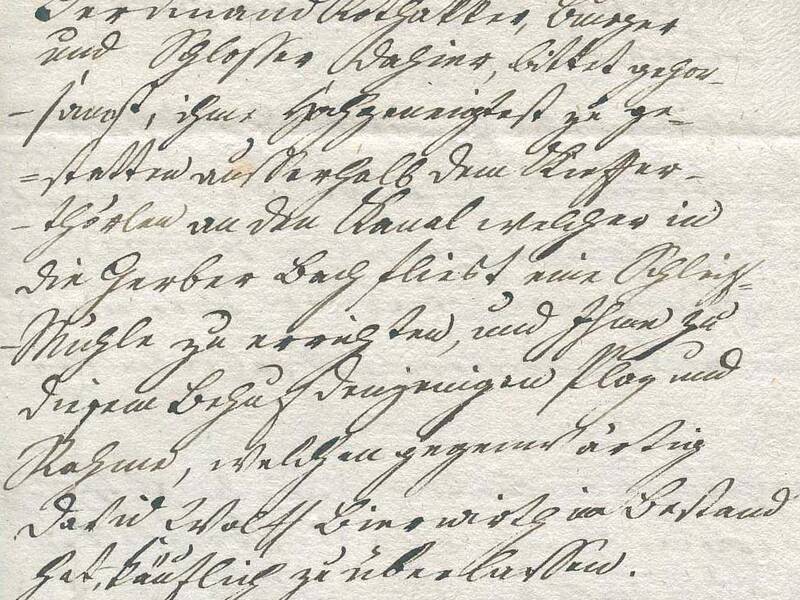 Ferdinand Rothakker, Burger
und Schlosser dahier, bittet gehor-
-samst, ihme Hochgeneigtest zu ge-
=statten ausserhalb dem Kieffer-
-thörlen an den Kanal welcher in
die Gerber Bach fliest eine Schleif-
-Mühle zu errichten, und Ihme zu
diesem Behuf denjenigen Plaz und
Rahme, welchen gegenwärtig
David Wolff Bierwirth im Bestand
hat, käuflich zu überlassen.